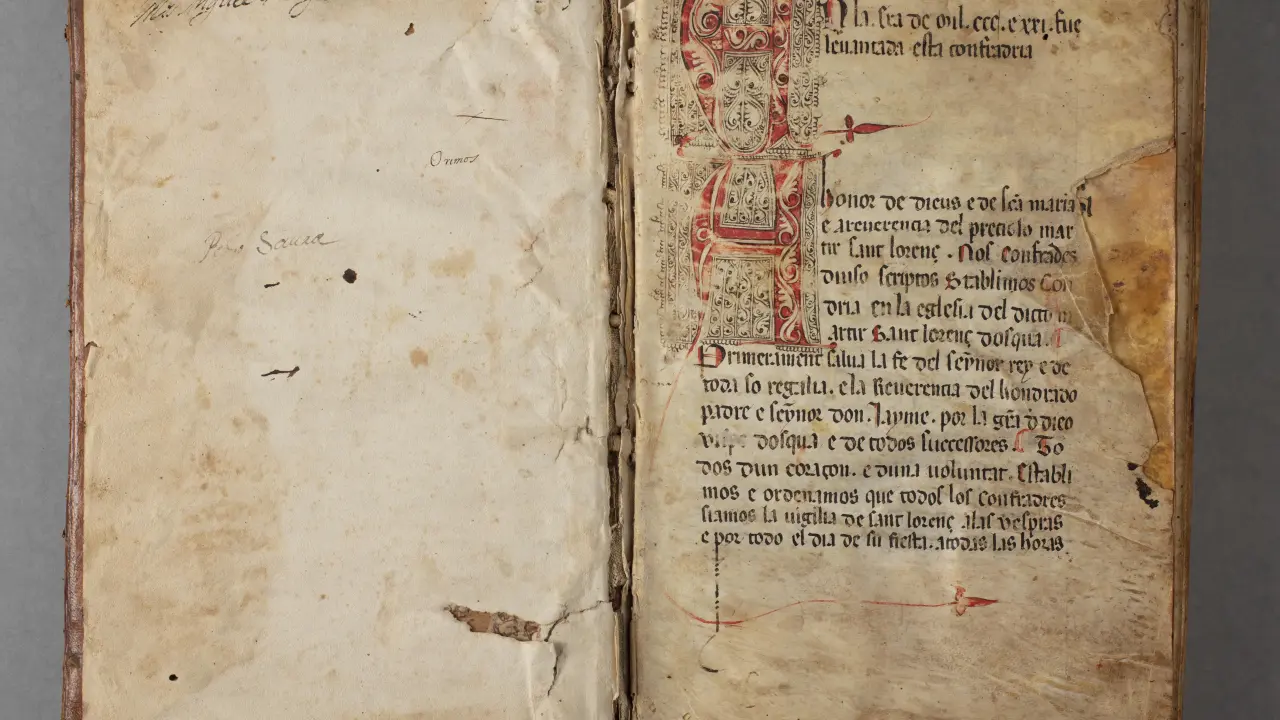 Miguel
Orimos
Saura
En la Era de Mil. ccc. e xxi. fue
leuantada esta confradria
A honor de dieus e de sc̃a maria
e areuerencia del precioso mar
tir sant lorenç. Nos confrades
diuso scriptos Stablimos Con
dria en la eglesia del dicto m
artir Sant lorenç dosqua.
Primerament salua la fe del seynnor rey e de
toda so regalia. e la Reuerencia del hondrado
padre e seynnor don. Jayme. por la gr̃a d dieo
dosqua e de todos successores. To
dos dun coraçon. e duna uoluntat. Establi
mos e ordenamos que todos los confradres
siamos la uigilia de sant lorenç alas vespras
e por todo el dia de su fiesta. atodas las horas